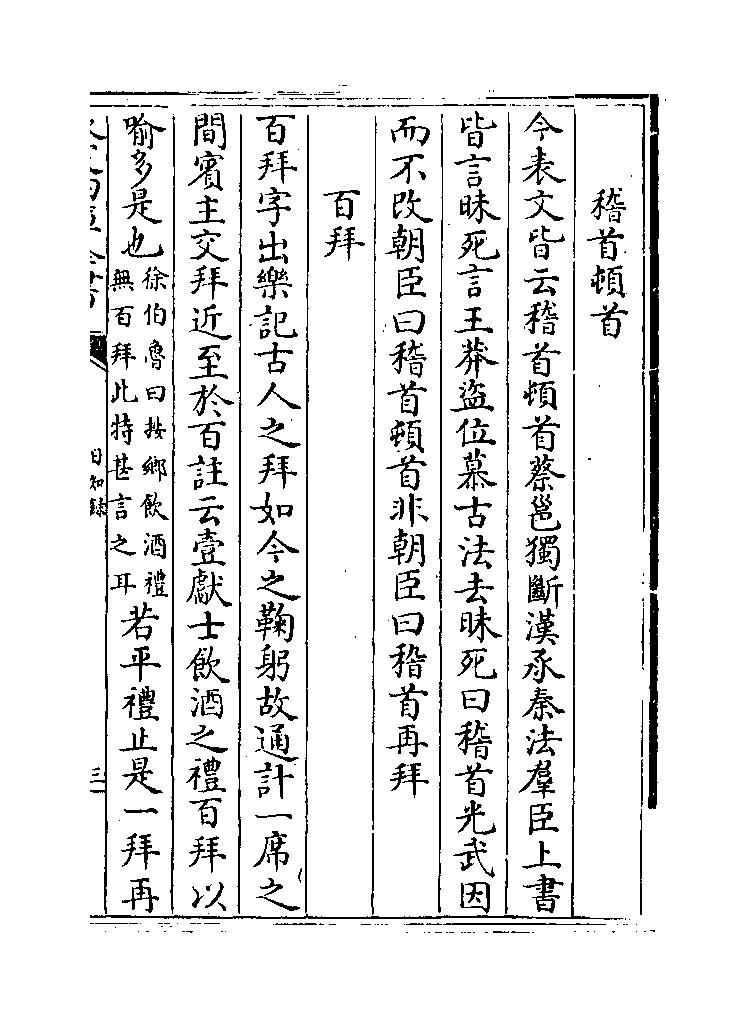 稽首頓首
今表文皆云稽首頓首蔡邕獨斷漢承秦法羣臣上書
皆言昧死言王莽盜位慕古法去昧死曰稽首光武因
而不改朝臣曰稽首頓首非朝臣曰稽首再拜
百拜
百拜字出樂記古人之拜如今之鞠躬故通計一席之
間賓主交拜近至於百註云壹獻士飲酒之禮百拜以
喻多是也徐伯魯曰按鄉飲酒禮
無百拜此特甚言之耳若平禮止是一拜再
日知錄
三